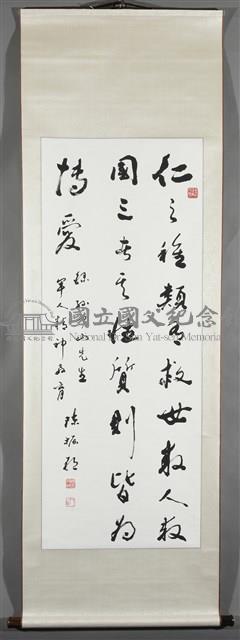 仁之種類有救世救人救
國三者其性質則皆為
博愛
錄孫中山先生
軍人精神教育
陳振
國立國父紀念
National Dr. Sun Yat-sen Memorial